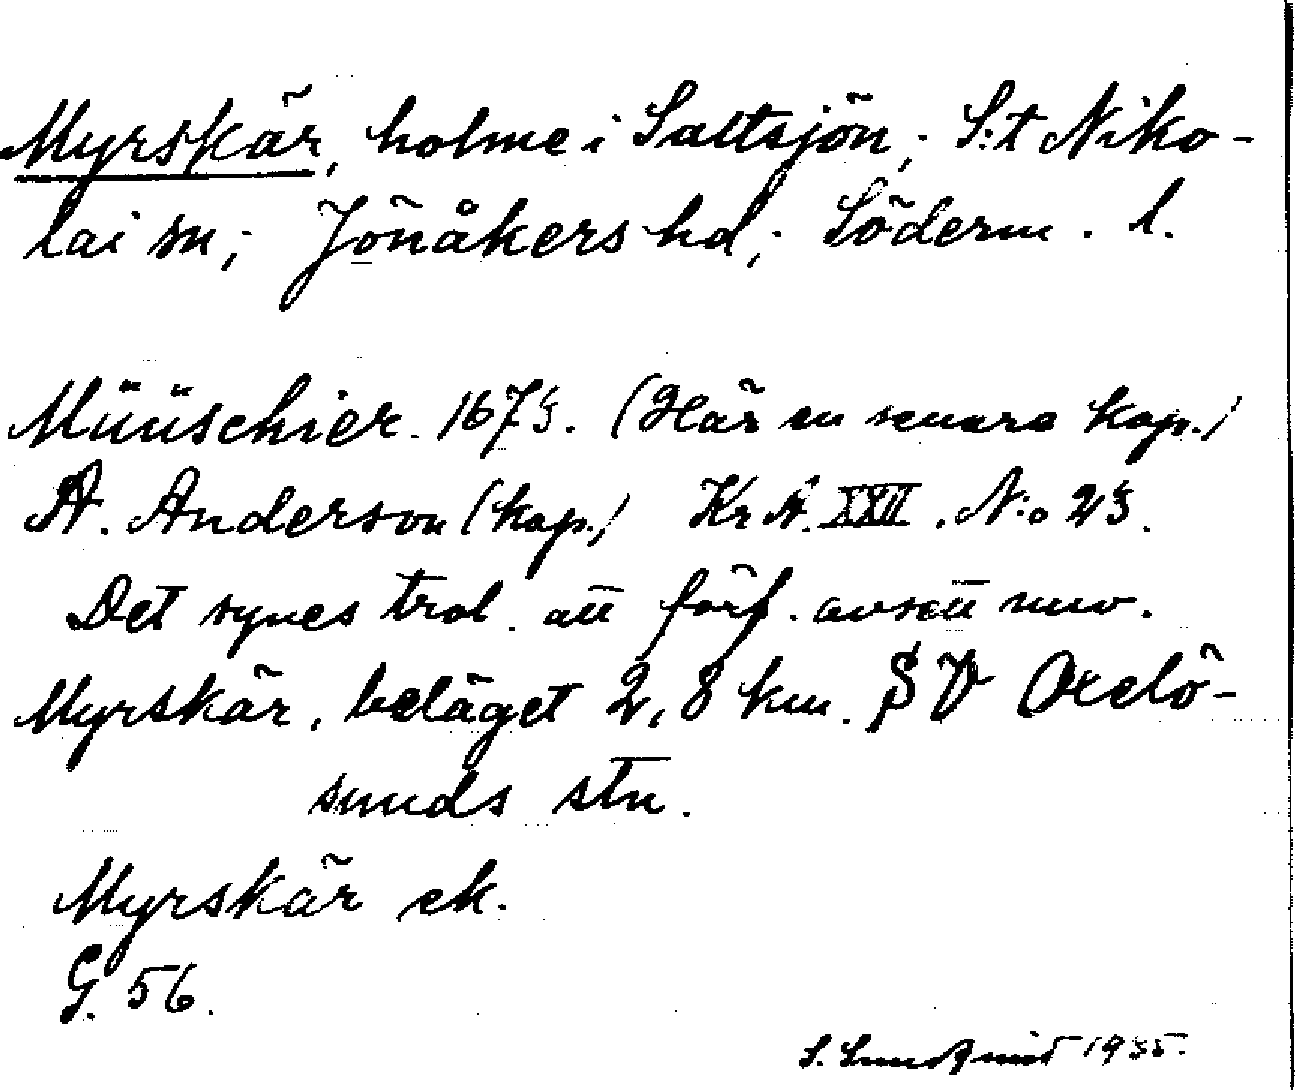 Myrskär, holme i Saltsjön; S:t Niko-
lai sn; Jönåkers hd; Söderm. l.
Müüschier. 1673. (Här en senare kop.)
A. Anderson (kop.) Kr A. XXII. N:o 23.
Det synes trol. att förf. avsett nuv.
Myrskär, beläget 2,8 km. SV Oxelö-
sunds stn.
Myrskär ek.
G. 56.
S. Lundqvist 1935.